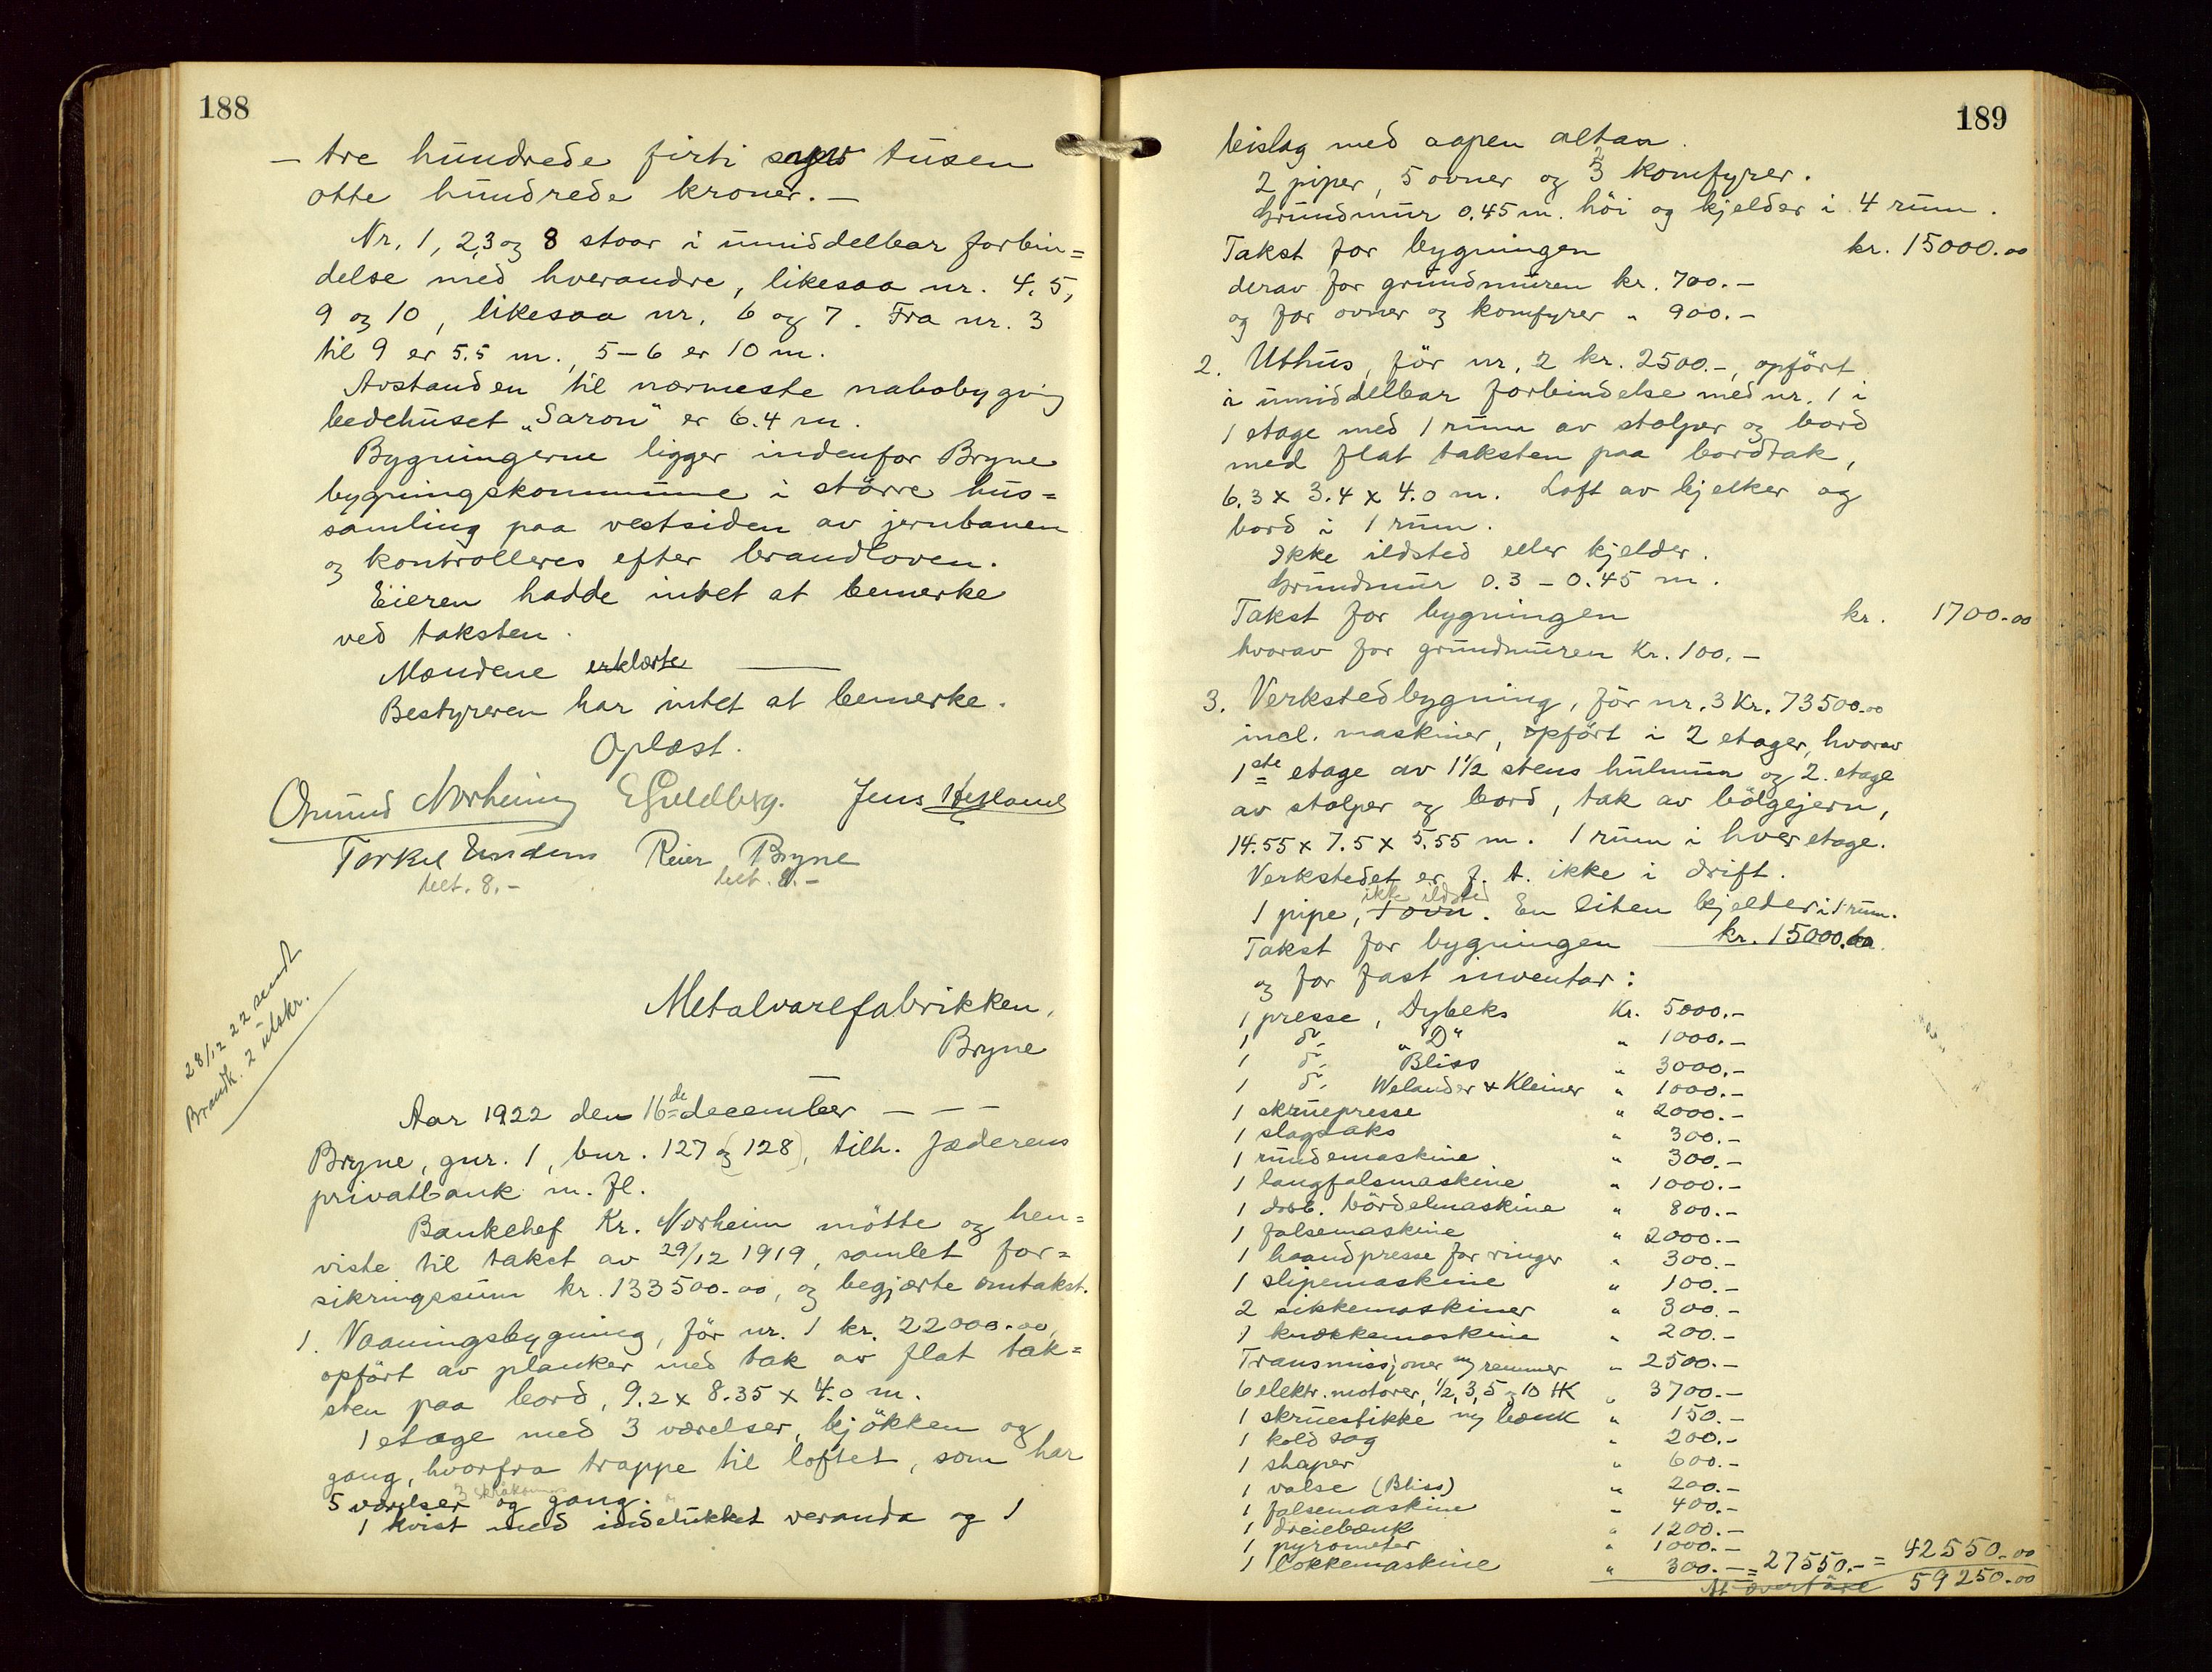 188
— tre hundrede firti syv tusen
otte hundrede kroner. —
Nr. 1, 2, 3 og 8 staar i umiddelbar forbin=
delse med hverandre, likesaa nr. 4, 5,
9 og 10, likesaa nr. 6 og 7. Fra nr. 3
til 9 er 5.5 m., 5–6 er 10 m.
Avstanden til nærmeste nabobygning
bedehuset „Saron" er 6.4 m.
Bygningerne ligger indenfor Bryne
bygningskommune i större hus=
samling paa vestsiden av jernbanen
og kontrolleres efter brandloven.
Eieren hadde intet at bemerke
ved taksten.
Mændene erklærte ———
Bestyreren har intet at bemerke.
Oplæst.
Omund Norheim E Guldberg. Jens Hesland
Torkel Undem Reier Bryne
bet. 8.– bet. 8.–
28/12 22 sendt
Brandk. 2 utskr.
Metalvarefabrikken,
Bryne
Aar 1922 den 16de december — — —
Bryne, gnr. 1, bnr. 127 og (128), tilh. Jæderens
privatbank m. fl.
Bankchef Kr. Norheim mötte og hen=
viste til takst av 29/12 1919, samlet for=
sikringssum kr. 133500.00, og begjærte omtakst.
1. Vaaningsbygning, för nr. 1 kr. 22000.00,
opfört av planker med tak av flat tak=
sten paa bord, 9.2 x 8.35 x 4.0 m.
1 etage med 3 værelser, kjökken og
gang, hvorfra trappe til loftet, som har
3 skråkammer
5 værelser og gang.
1 kvist med indelukket veranda og 1
189
bislag med aapen altan.
2 piper, 5 ovner og 3 2 komfyrer.
Grundmur 0.45 m. höi og kjelder i 4 rum.
Takst for bygningen kr. 15000.00
derav for grundmuren kr. 700.–
og for ovner og komfyrer " 900.–
2. Uthus, för nr. 2 kr. 2500.–, opfört
i umiddelbar forbindelse med nr. 1 i
1 etage med 1 rum av stolper og bord
med flat taksten paa bordtak,
6.3 x 3.4 x 4.0 m. Loft av bjelker og
bord i 1 rum.
Ikke ildsted eller kjelder.
Grundmur 0.3 – 0.45 m.
Takst for bygningen kr. 1700.00
hvorav for grundmuren Kr. 100.–
3. Verkstedbygning, för nr. 3 Kr. 73500.00
incl. maskiner, opfört i 2 etager, hvorav
1ste etage av 1½ stens hulmur og 2. etage
av stolper og bord, tak av bölgejern,
14.55 x 7.5 x 5.55 m. 1 rum i hver etage.
Verkstedet er f. t. ikke i drift.
ikke ildsted
1 pipe, 1 ovn. En liten kjelder i 1 rum.
Takst for bygningen kr. 15000.00
og for fast inventar:
1 presse, Dybeks Kr. 5000.–
1 do, „D" " 1000.–
1 do, Bliss " 3000.–
1 do, Welander & Kleiner " 1000.–
1 skruepresse " 2000.–
1 slagsaks " 300.–
1 rundemaskine " 300.–
1 langfalsmaskine " 1000.–
1 dob. bördelmaskine " 800.–
1 falsemaskine " 2000.–
1 haandpresse for ringer " 300.–
1 slipemaskine " 100.–
2 sikkemaskiner " 300.–
1 knækkemaskine " 200.–
Transmissjoner og remmer " 2500.–
6 elektr. motorer, ½, 3, 5 og 10 HK " 3700.–
1 skruestikke og bænk " 150.–
1 kold sag " 200.–
1 shaper " 600.–
1 valse (Bliss) " 200.–
1 falsemaskine " 400.–
1 dreiebænk " 1200.–
1 pyrometer " 1000.–
1 lokkemaskine " 300.– = 27550.– = 42550.00
At overföre 59250.00